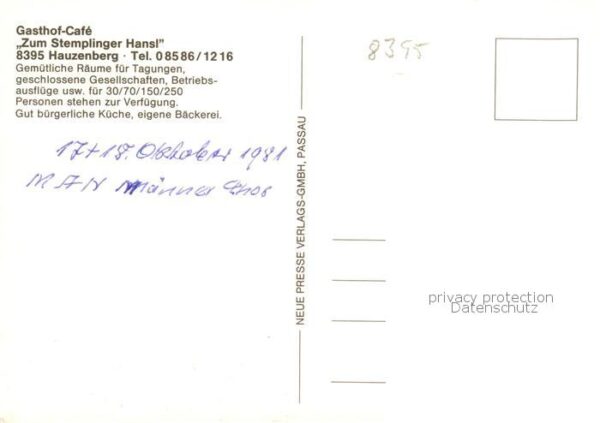 Gasthof-Café
„Zum Stemplinger Hansl”
8395 Hauzenberg · Tel. 0 85 86 / 12 16
Gemütliche Räume für Tagungen,
geschlossene Gesellschaften, Betriebs-
ausflüge usw. für 30/70/150/250
Personen stehen zur Verfügung.
Gut bürgerliche Küche, eigene Bäckerei.
17+18. Oktober 1981
MAN Männer Chor
8395
NEUE PRESSE VERLAGS-GMBH, PASSAU
privacy protection
Datenschutz